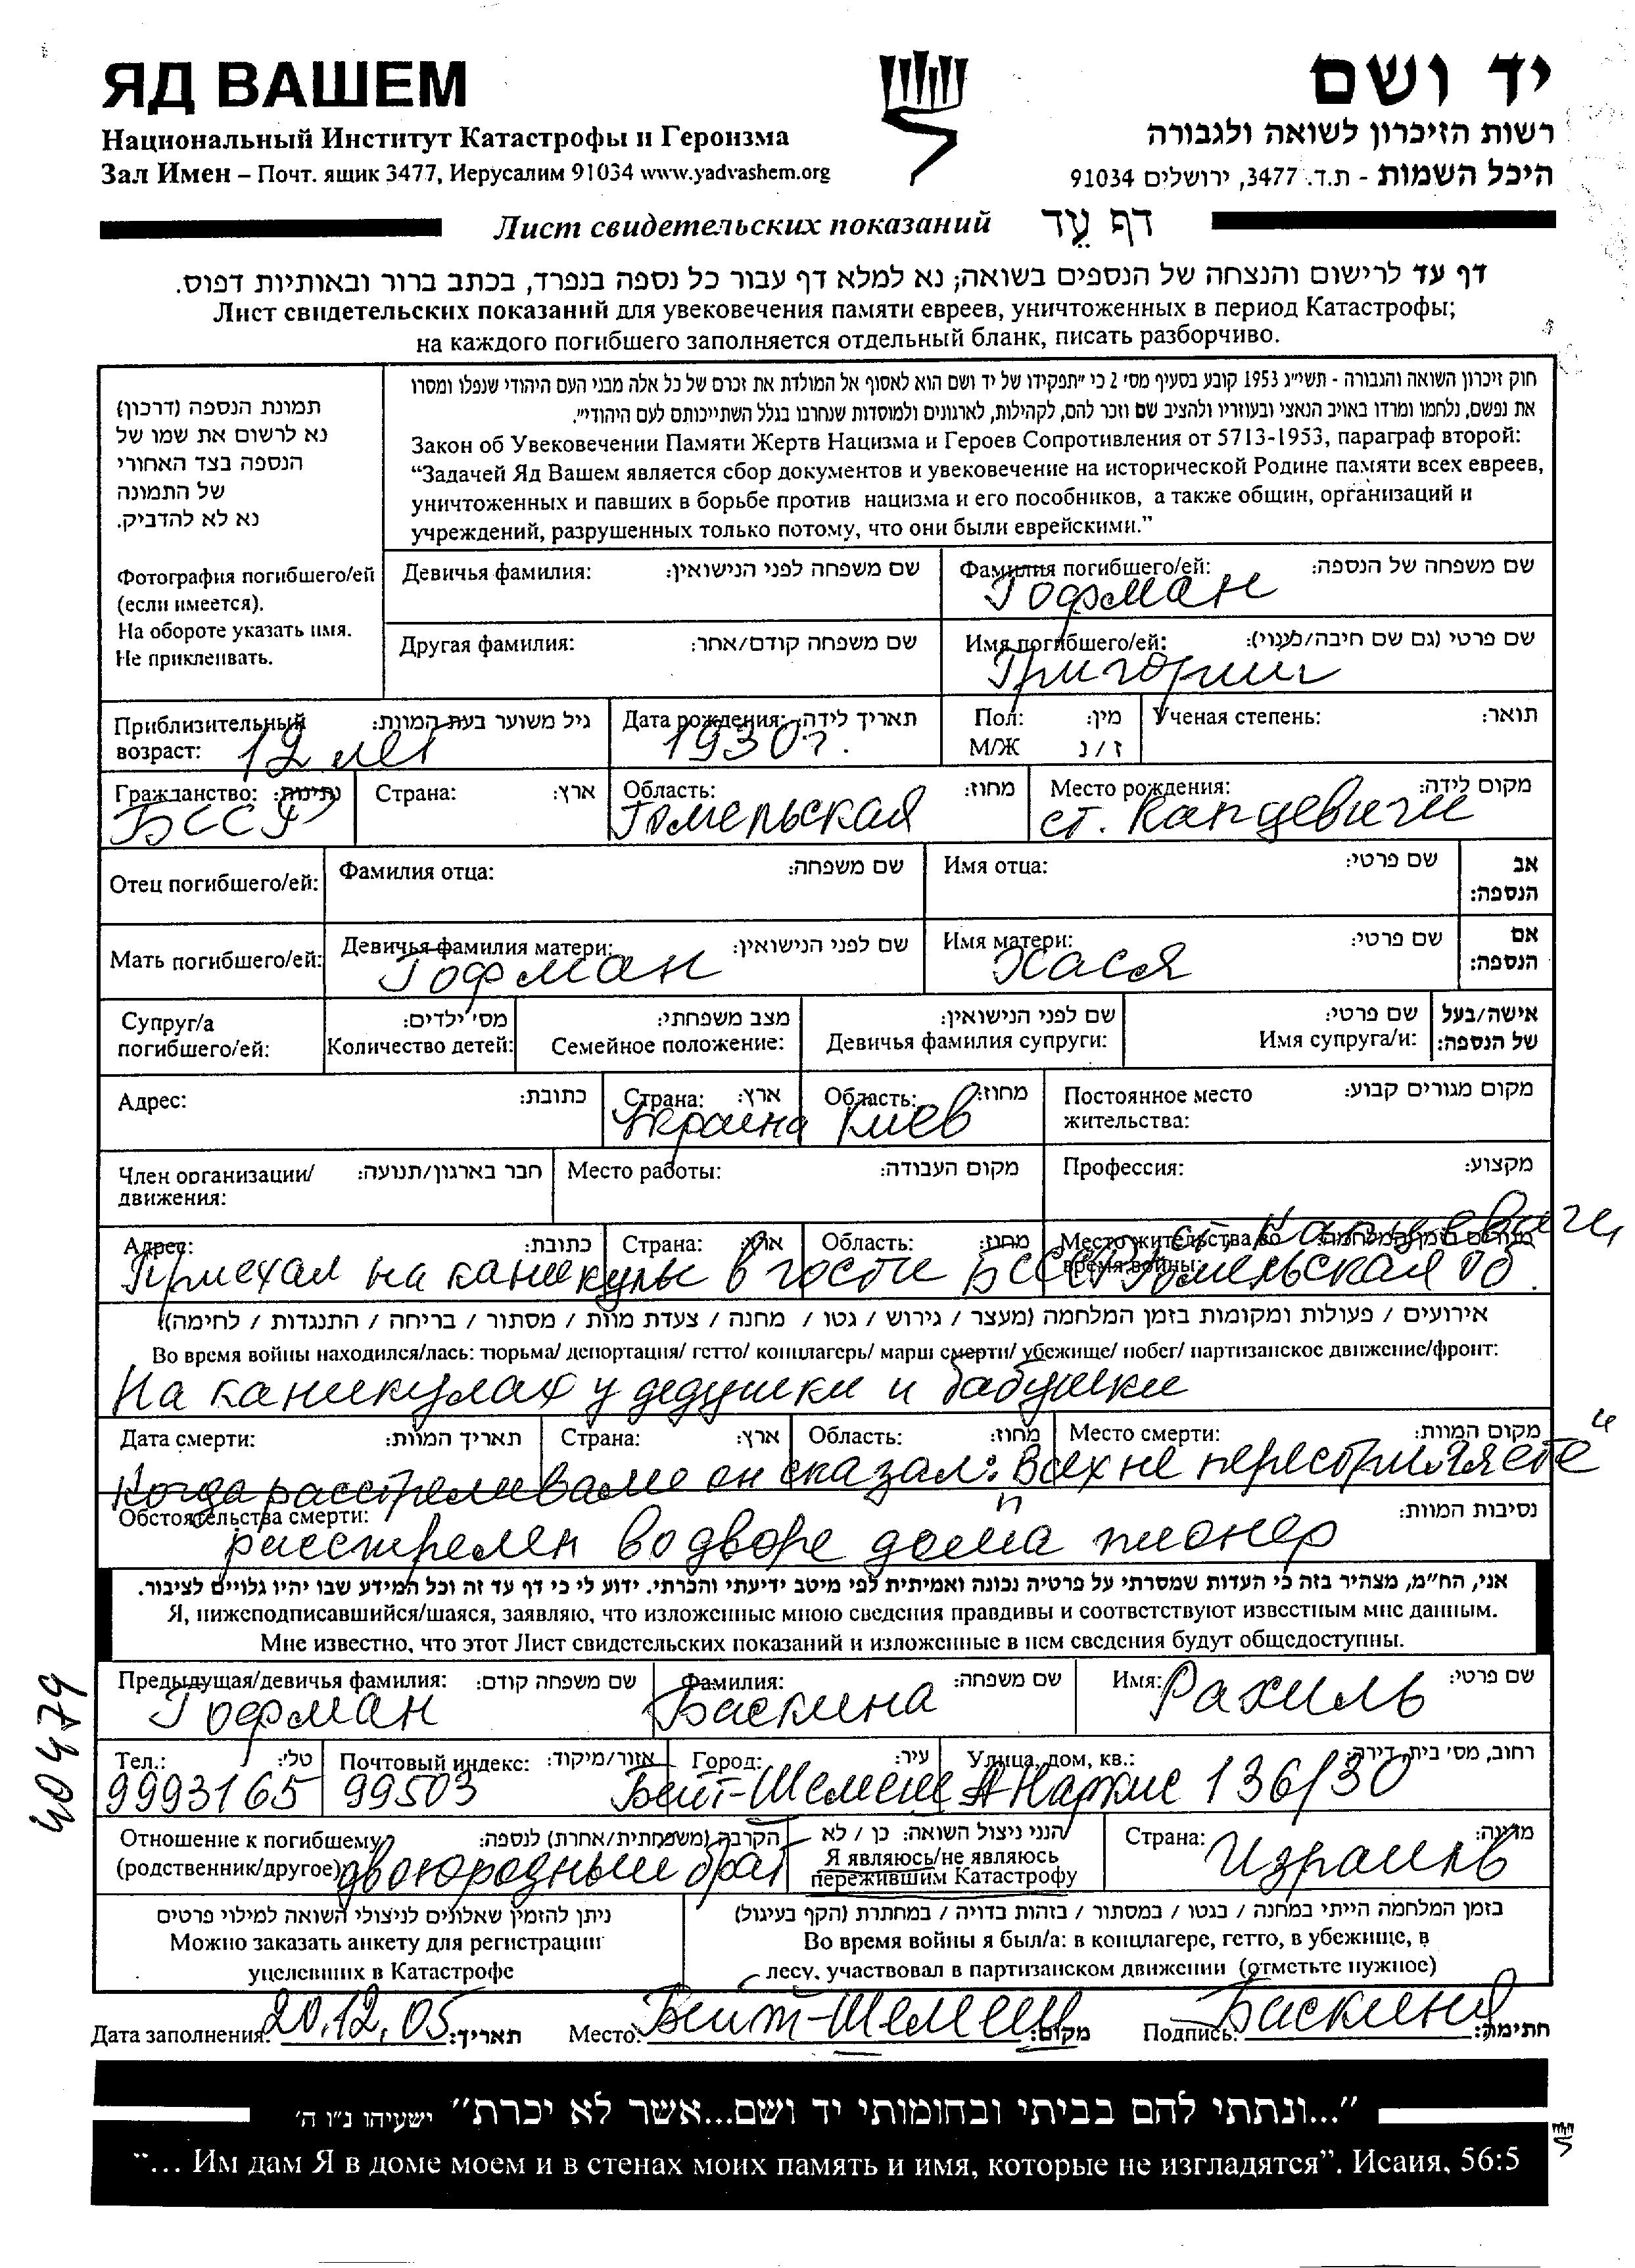 ЯД ВАШЕМ
יד ושם
Национальный Институт Катастрофы и Героизма
רשות הזיכרון לשואה ולגבורה
Зал Имен – Почт. ящик 3477, Иерусалим 91034 www.yadvashem.org
היכל השמות - ת.ד. 3477, ירושלים 91034
Лист свидетельских показаний דף עֵד
דף עד לרישום והנצחה של הנספים בשואה; נא למלא דף עבור כל נספה בנפרד, בכתב ברור ובאותיות דפוס.
Лист свидетельских показаний для увековечения памяти евреев, уничтоженных в период Катастрофы;
на каждого погибшего заполняется отдельный бланк, писать разборчиво.
תמונת הנספה (דרכון)
נא לרשום את שמו של
הנספה בצד האחורי
של התמונה
נא לא להדביק.
Фотография погибшего/ей
(если имеется).
На обороте указать имя.
Не приклеивать.
חוק זיכרון השואה והגבורה - תשי"ג 1953 קובע בסעיף מס' 2 כי "תפקידו של יד ושם הוא לאסוף אל המולדת את זכרם של כל אלה מבני העם היהודי שנפלו ומסרו
את נפשם, נלחמו ומרדו באויב הנאצי ובעוזריו ולהציב שם וזכר להם, לקהילות, לארגונים ולמוסדות שנחרבו בגלל השתייכותם לעם היהודי".
Закон об Увековечении Памяти Жертв Нацизма и Героев Сопротивления от 5713-1953, параграф второй:
“Задачей Яд Вашем является сбор документов и увековечение на исторической Родине памяти всех евреев,
уничтоженных и павших в борьбе против нацизма и его пособников, а также общин, организаций и
учреждений, разрушенных только потому, что они были еврейскими.”
Девичья фамилия: שם משפחה לפני הנישואין: Фамилия погибшего/ей: שם משפחה של הנספה:
Гофман
Другая фамилия: שם משפחה קודם/אחר: Имя погибшего/ей: שם פרטי (גם שם חיבה/כינוי):
Григорий
Приблизительный возраст: גיל משוער בעת המוות: Дата рождения: תאריך לידה: Пол: М/Ж מין: ז / נ Ученая степень: תואר:
12 лет 1930г.
Гражданство: נתינות: Страна: ארץ: Область: מחוז: Место рождения: מקום לידה:
БССР Гомельская ст. Капцевичи
Отец погибшего/ей: Фамилия отца: שם משפחה: Имя отца: שם פרטי: אב הנספה:
Мать погибшего/ей: Девичья фамилия матери: שם לפני הנישואין: Имя матери: שם פרטי: אם הנספה:
Гофман Хася
Супруг/а погибшего/ей: מס' ילדים: Количество детей: מצב משפחתי: Семейное положение: שם לפני הנישואין: Девичья фамилия супруги: שם פרטי: Имя супруга/и: אישה/בעל של הנספה:
Адрес: כתובת: Страна: ארץ: Область: מחוז: Постоянное место жительства: מקום מגורים קבוע:
Украина Киев
Член организации/движения: חבר בארגון/תנועה: Место работы: מקום העבודה: Профессия: מקצוע:
Адрес: כתובת: Страна: ארץ: Область: מחוז: Место жительства во время войны:
ст. Капцевичи
Приехал на каникулы в гости БССР Гомельская об.
אירועים / פעולות ומקומות בזמן המלחמה (מעצר / גירוש / גטו / מחנה / צעדת מוות / מסתור / בריחה / התנגדות / לחימה)
Во время войны находился/лась: тюрьма/ депортация/ гетто/ концлагерь/ марш смерти/ убежище/ побег/ партизанское движение/фронт:
На каникулах у дедушки и бабушки
Дата смерти: תאריך המוות: Страна: ארץ: Область: מחוז: Место смерти: מקום המוות:
Когда расстреливали он сказал: "Всех не перестреляете"
Обстоятельства смерти: נסיבות המוות:
расстрелен во дворе дома пионер
אני, הח"מ, מצהיר בזה כי העדות שמסרתי על פרטיה נכונה ואמיתית לפי מיטב ידיעתי והכרתי. ידוע לי כי דף עד זה וכל המידע שבו יהיו גלויים לציבור.
Я, нижеподписавшийся/шаяся, заявляю, что изложенные мною сведения правдивы и соответствуют известным мне данным.
Мне известно, что этот Лист свидетельских показаний и изложенные в нем сведения будут общедоступны.
Предыдущая/девичья фамилия: שם משפחה קודם: Фамилия: שם משפחה: Имя: שם פרטי:
Гофман Баскина Рахиль
Тел.: טלי: Почтовый индекс: אזור/מיקוד: Город: עיר: Улица, дом, кв.: רחוב, מס' בית, דירה:
9993165 99503 Бейт-Шемеш Наркис 136/30
40479
Отношение к погибшему (родственник/другое): הקרבה (משפחתית/אחרת) לנספה: הנני ניצול השואה: כן / לא Я являюсь/не являюсь пережившим Катастрофу Страна: מדינה:
двоюродный брат Израиль
ניתן להזמין שאלונים לניצולי השואה למילוי פרטים
Можно заказать анкету для регистрации
уцелевших в Катастрофе
בזמן המלחמה הייתי במחנה / בגטו / במסתור / בזהות בדויה / במחתרת (הקף בעיגול)
Во время войны я был/а: в концлагере, гетто, в убежище, в
лесу, участвовал в партизанском движении (отметьте нужное)
Дата заполнения: 20.12.05 תאריך: Место: Бейт-Шемеш מקום: Подпись: Баскина חתימה:
"...ונתתי להם בביתי ובחומותי יד ושם...אשר לא יכרת" ישעיהו נ"ו ה'
“... Им дам Я в доме моем и в стенах моих память и имя, которые не изгладятся”. Исаия, 56:5